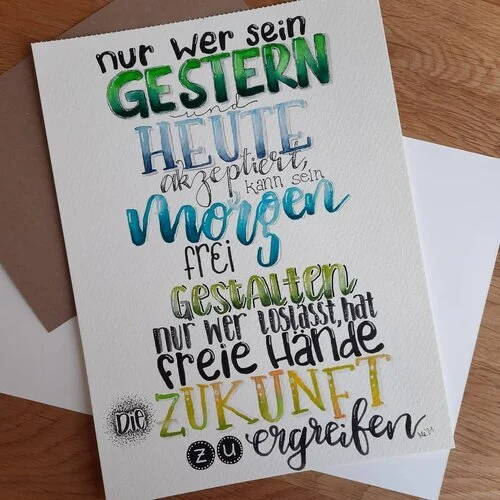 nur wer sein
GESTERN
und
HEUTE
akzeptiert,
kann sein
morgen
frei
GESTALTEN
nur wer loslässt, hat
freie Hände
Die ZUKUNFT
ZU ergreifen